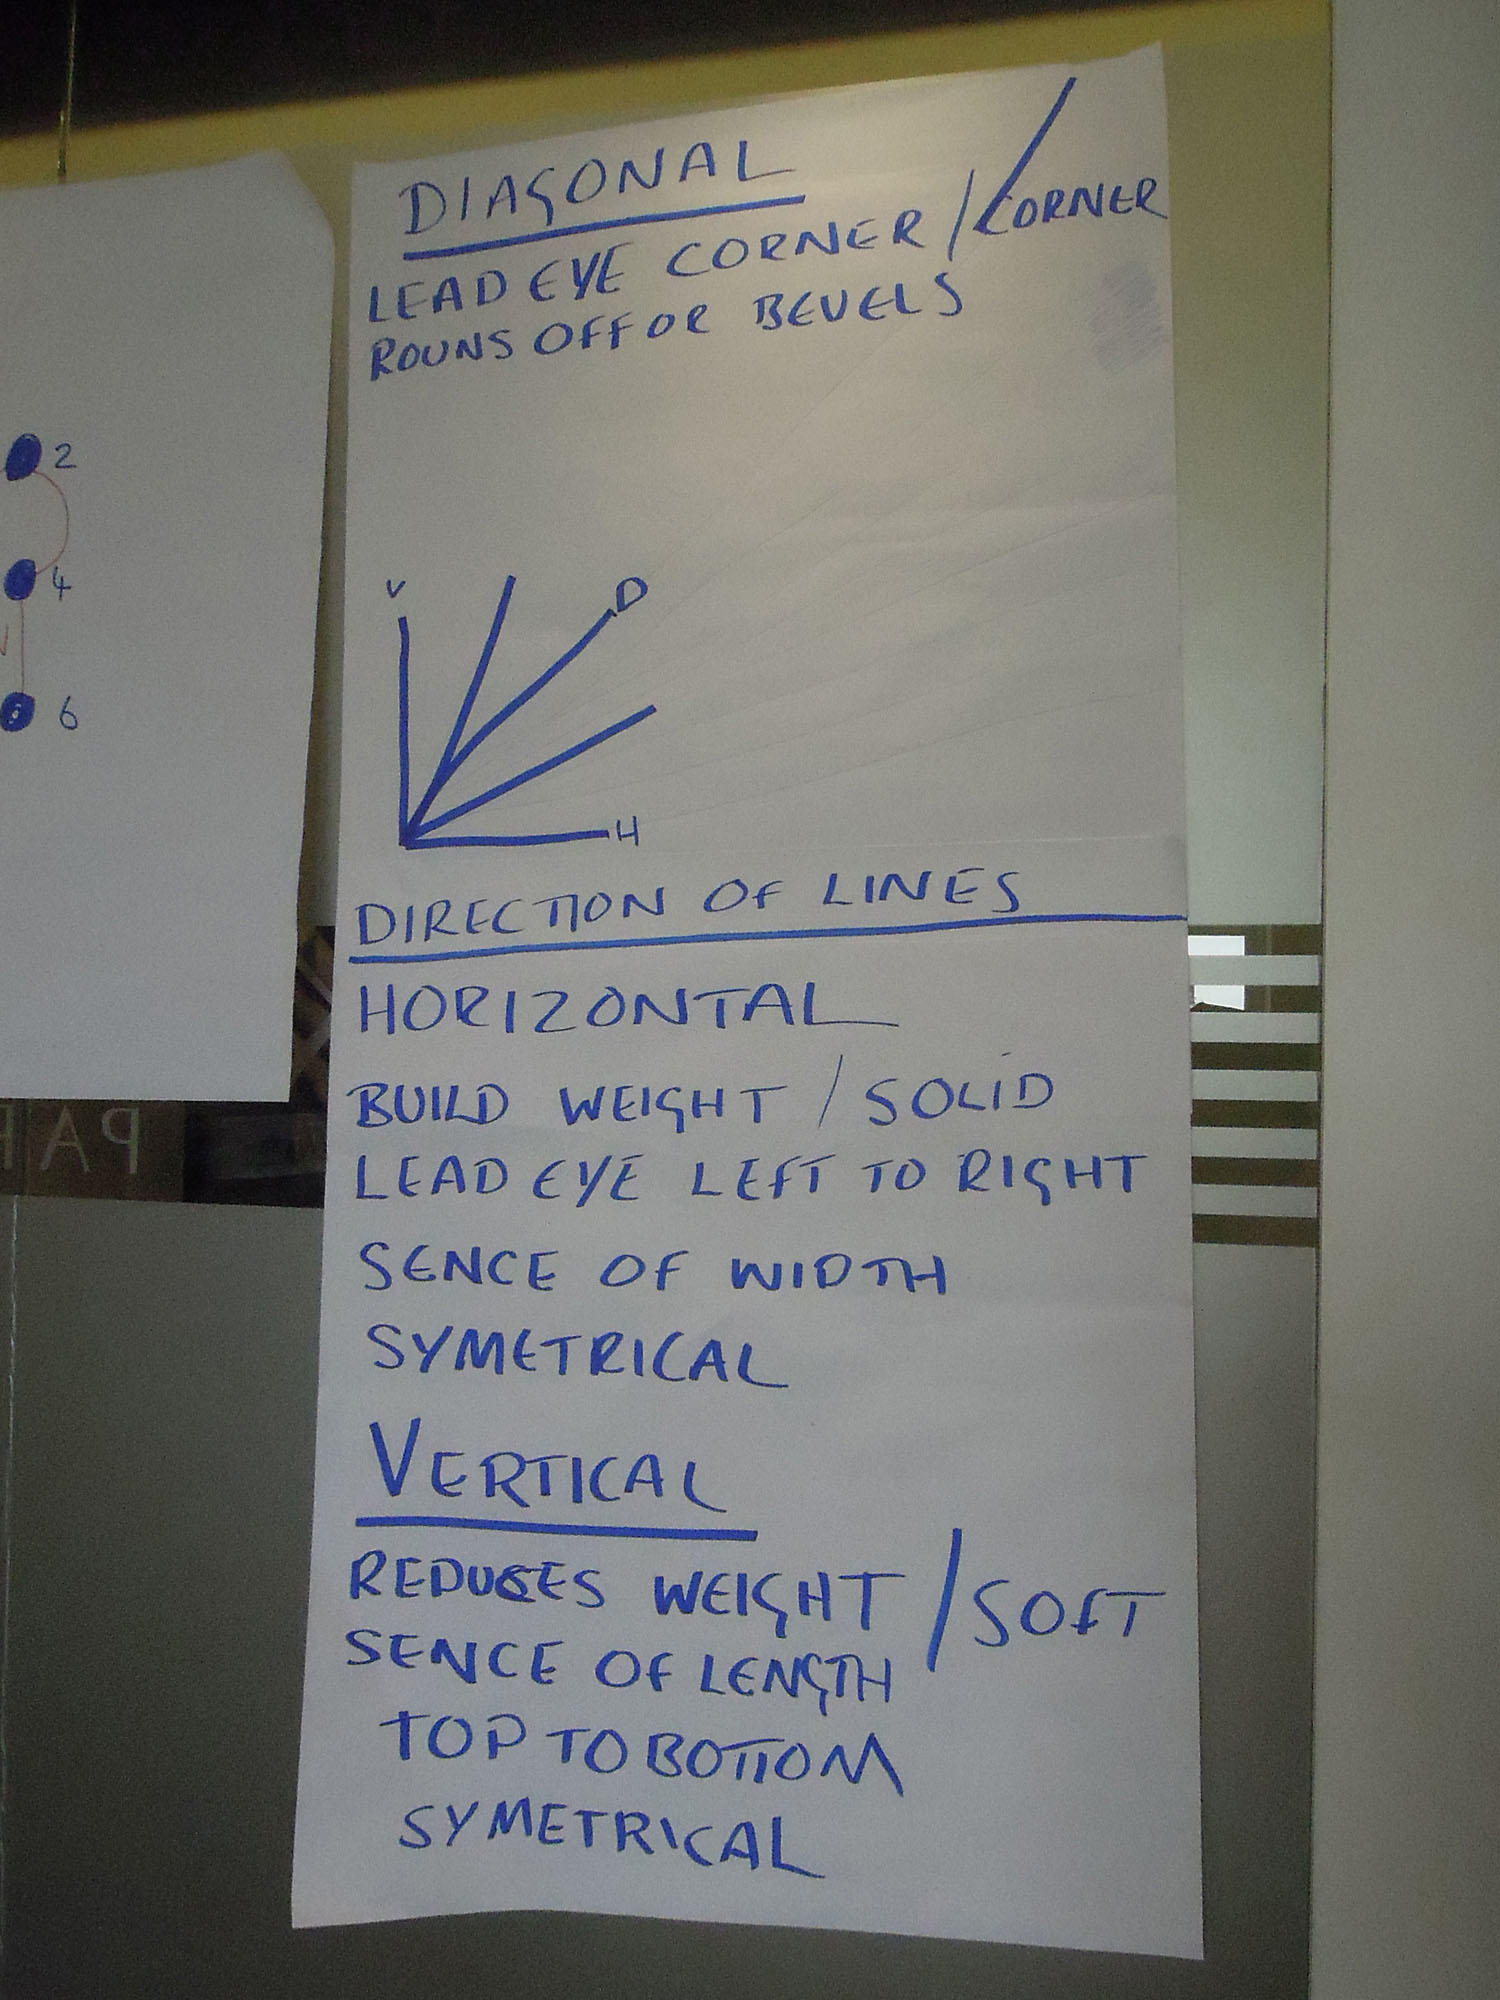 DIAGONAL
LEAD EYE CORNER / CORNER
ROUNS OFF OR BEVELS
V
D
H
DIRECTION OF LINES
HORIZONTAL
BUILD WEIGHT / SOLID
LEAD EYE LEFT TO RIGHT
SENCE OF WIDTH
SYMETRICAL
VERTICAL
REDUCES WEIGHT / SOFT
SENCE OF LENGTH
TOP TO BOTTOM
SYMETRICAL
2
4
6